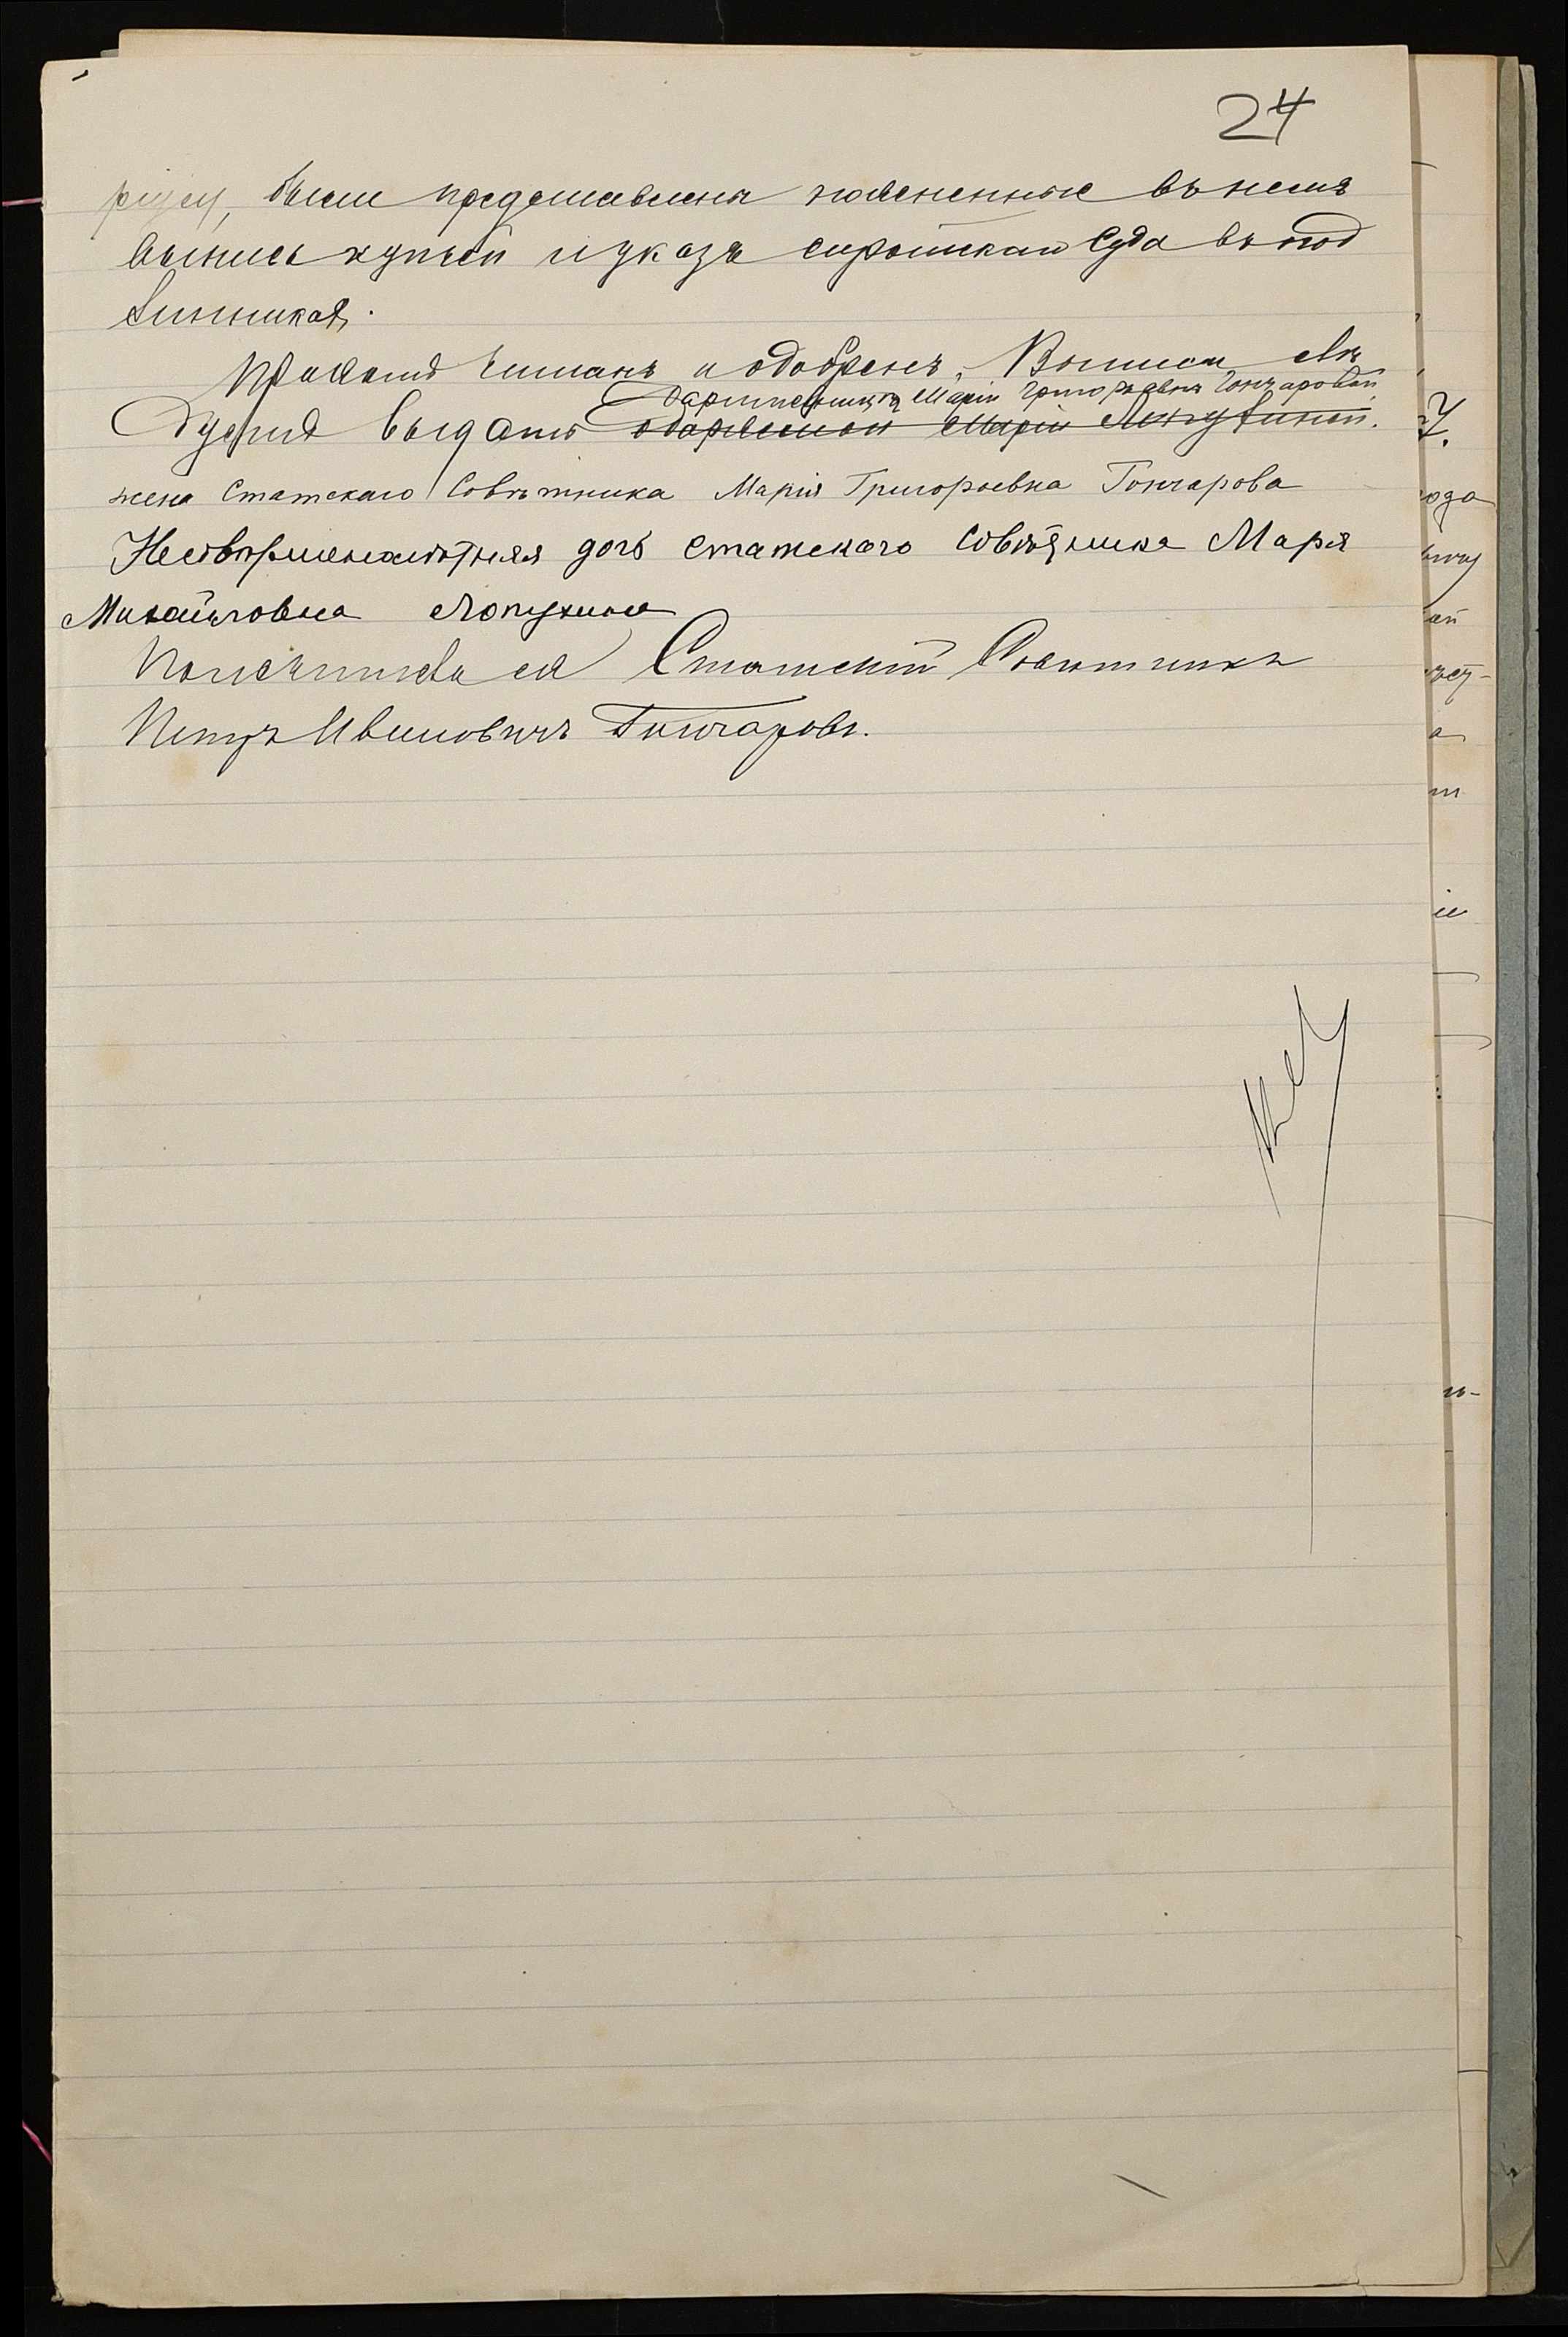 24
были представлены поясненные въ немъ
выпись купчей и указъ сиротскаго Суда въ под
линникахъ.
Проектъ читанъ и одобренъ. Выпись слѣ
дарительницѣ Маріи Григорьевнѣ Гончаровой
дуетъ выдать одаряемой Маріи Лопухиной.
жена Статскаго Совѣтника Марія Григорьевна Гончарова
Несовершеннолѣтняя дочь статскаго совѣтника Марія
Михайловна Лопухина
Попечитель ея Статскій Совѣтникъ
Петръ Ивановичъ Гончаровъ.